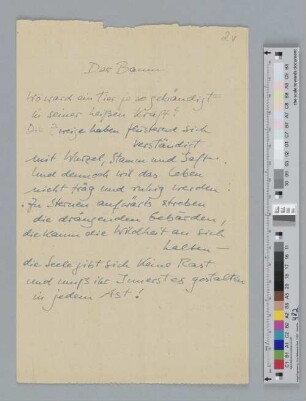 2v
Der Baum
Wo ward ein Tier je so gebändigt
in seiner heißen Kraft?
Die Zweige haben flüsternd sich
verständigt
mit Wurzel, Stamm und Saft.
Und dennoch will das Leben
nicht träg und ruhig werden:
zu Sternen aufwärts streben
die drängenden Gebärden,
die kaum die Wildheit an sich
halten –
die Seele gibt sich keine Rast
und muß ihr Innerstes gestalten
in jedem Ast!